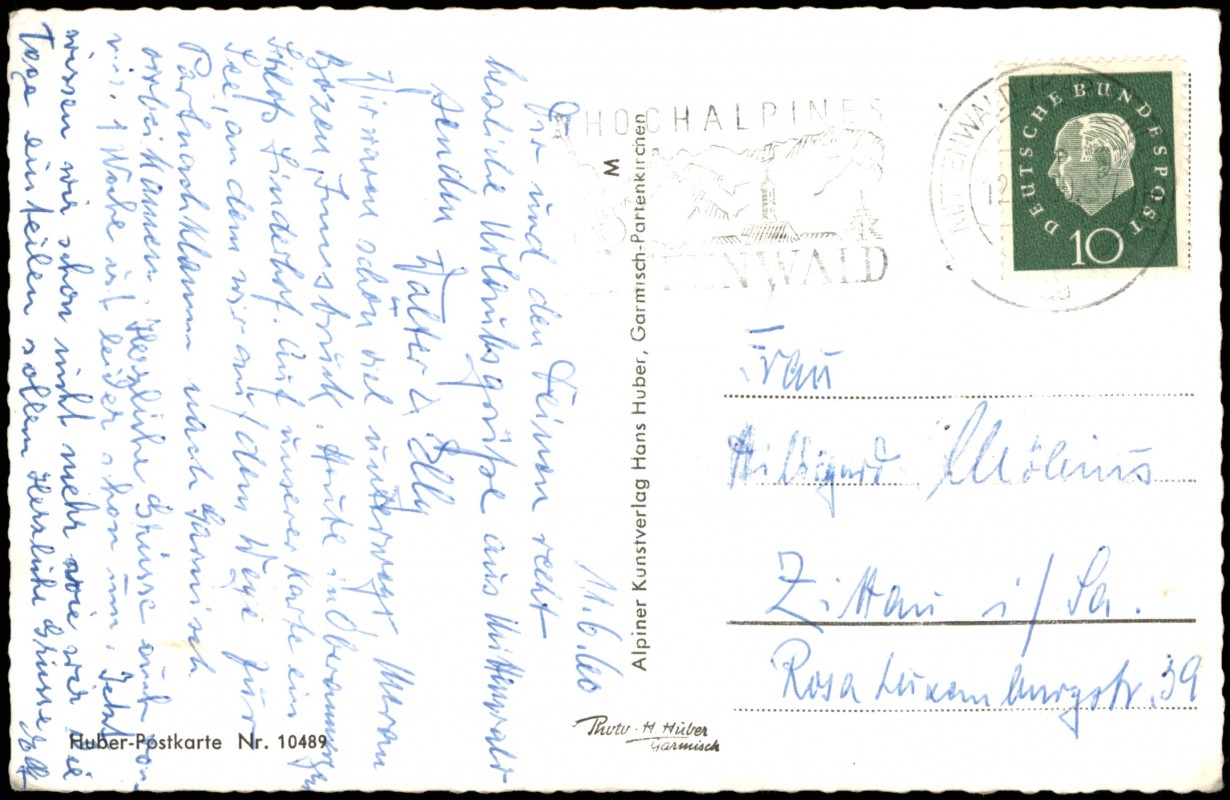 11.6.60
Dir und den Deinen recht
herzliche Urlaubsgrüße aus Mittenwald
senden Walter u. Elly
Wir waren schon viel unterwegs Meran
Bozen, Innsbruck. Heute in Oberammergau
Schloß Linderhof. Auf unserer Karte ein
See, an dem wir auf dem Wege zur
Partnachklamm nach Garmisch
vorbei kamen. Herzliche Grüsse auch von
mir. 1 Woche ist leider schon um. Jetzt
wissen wir schon nicht mehr wie wir die
Tage einteilen sollen Herzliche Grüsse
Huber-Postkarte Nr. 10489
M
Alpiner Kunstverlag Hans Huber, Garmisch-Partenkirchen
Photo - H. Huber
Garmisch
HOCHALPINES
MITTENWALD
DEUTSCHE BUNDESPOST
10
Frau
Hildegard Möbius
Zittau i/Sa.
Rosa Luxemburgstr. 39